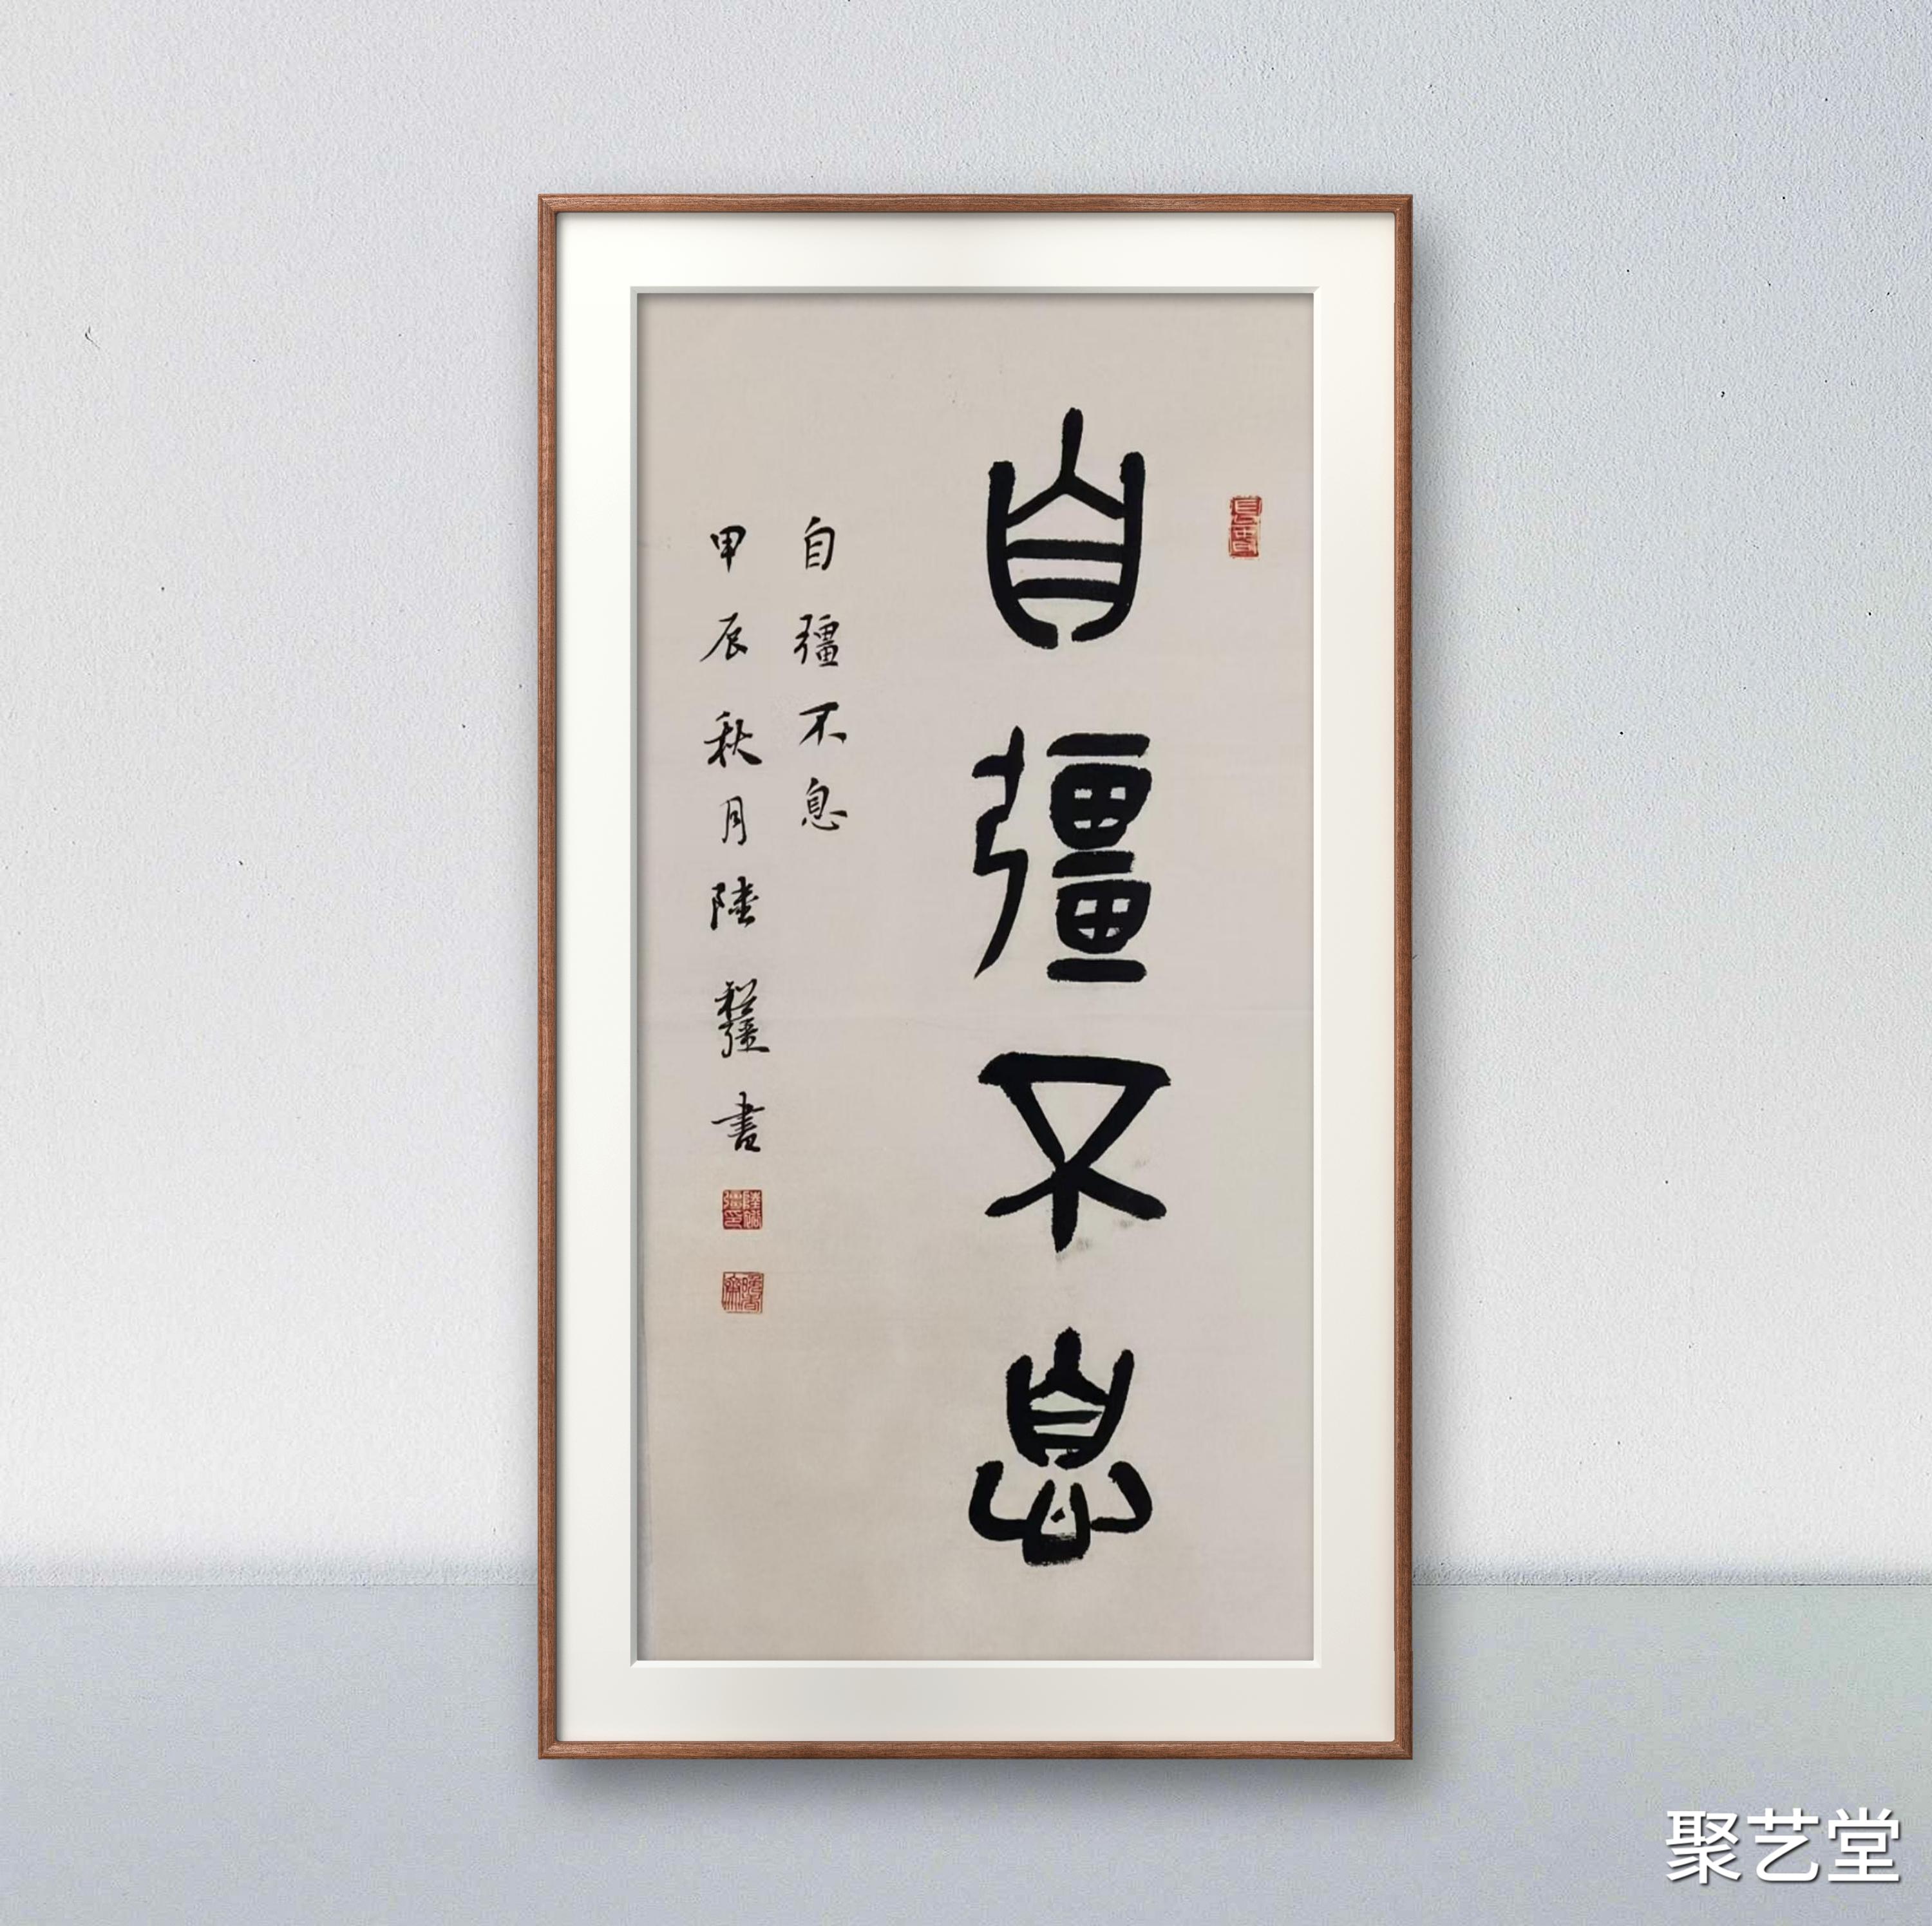 自彊不息
自彊不息
甲辰秋月陸
書
聚艺堂